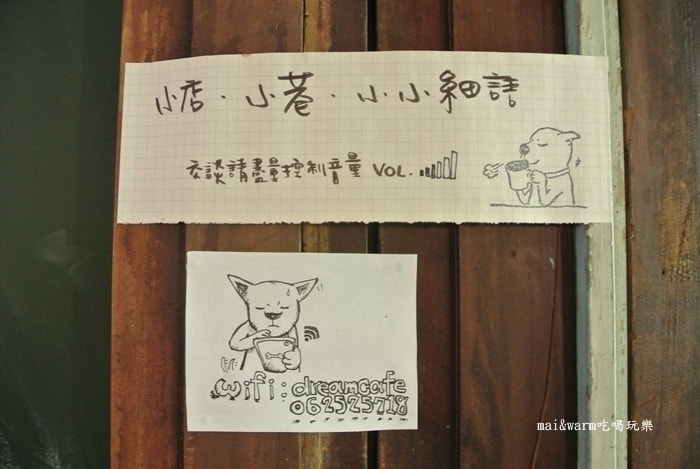 小店．小巷．小小細語
交談請盡量控制音量 VOL.
wifi:dreamcafe
062525718
mai&warm吃喝玩樂